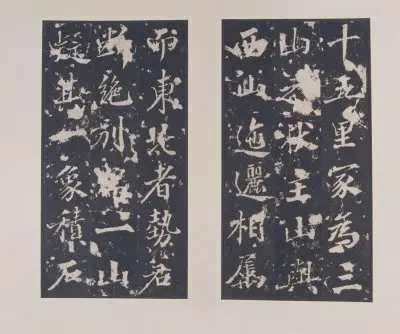 十五里冢為三
山之狀主山與
西山迤邐相屬
而東北者勢若
斷絕別為一山
疑其一象積石